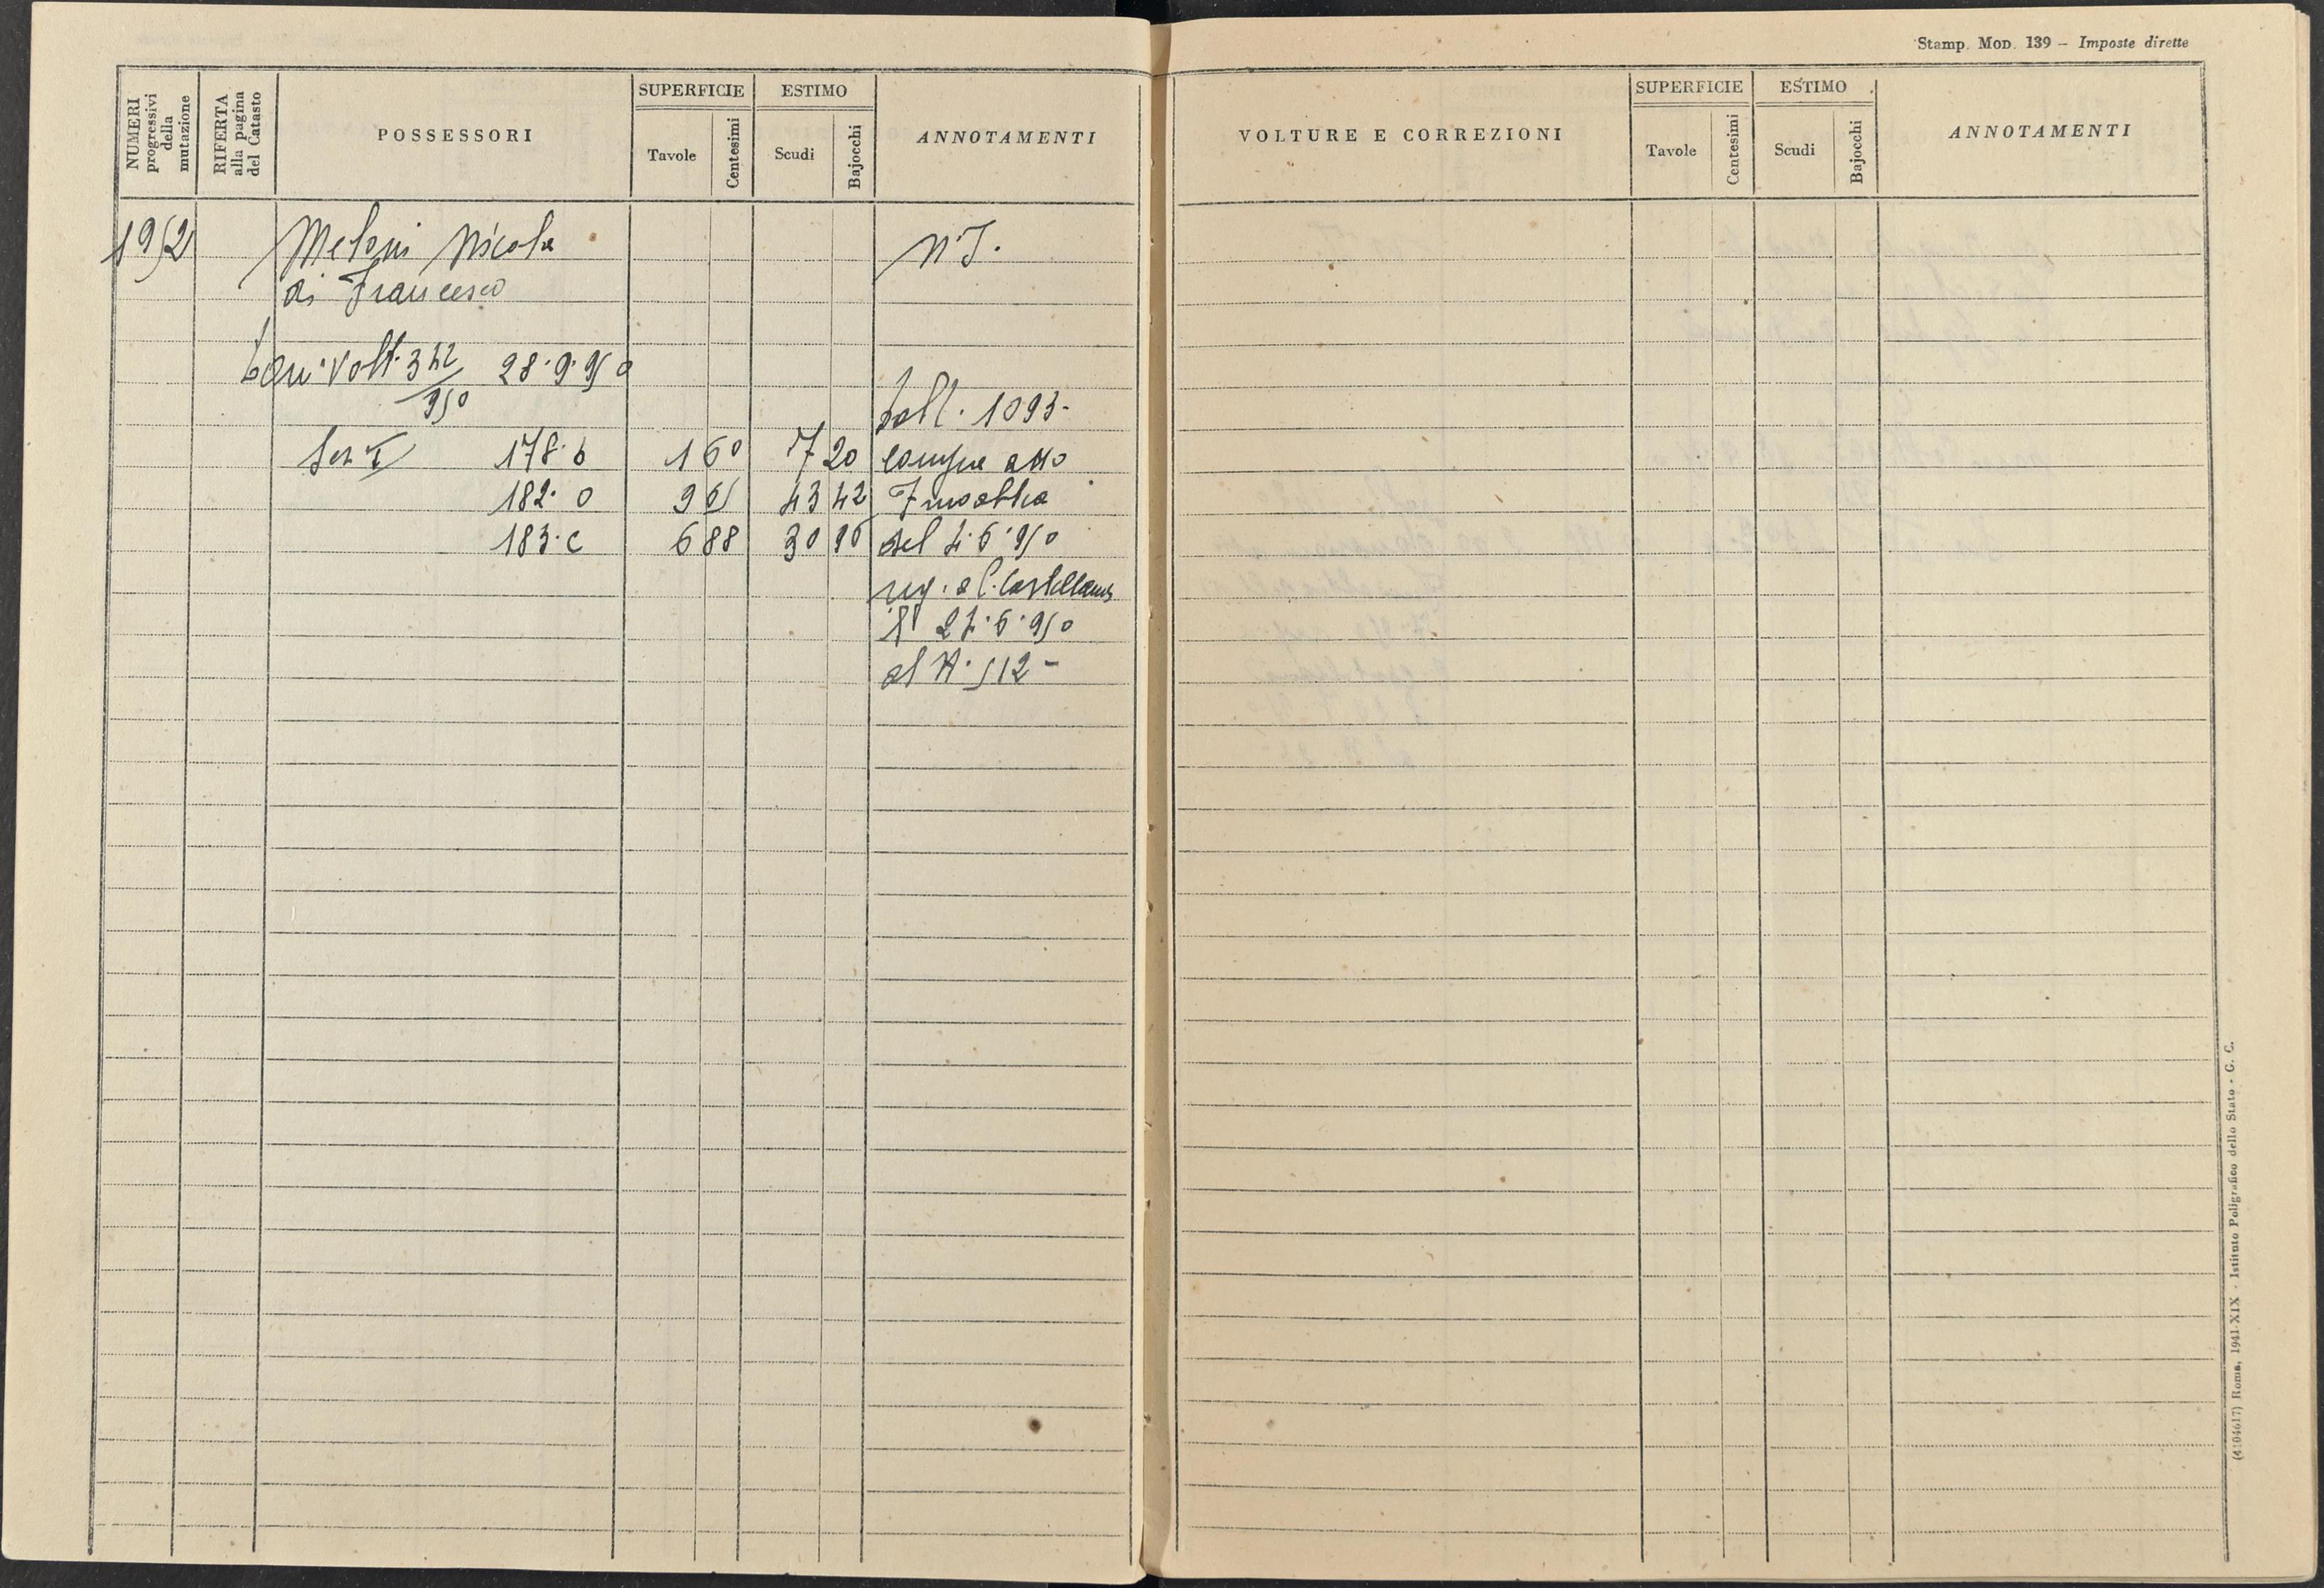 Stamp. Mod. 139 – Imposte dirette
NUMERI progressivi della mutazione
RIFERTA alla pagina del Catasto
POSSESSORI
SUPERFICIE
Tavole
Centesimi
ESTIMO
Scudi
Bajocchi
ANNOTAMENTI
VOLTURE E CORREZIONI
SUPERFICIE
Tavole
Centesimi
ESTIMO
Scudi
Bajocchi
ANNOTAMENTI
1952 Meloni Nicola N.T.
di Francesco
Con Volt. 342/950 28.9.950
boll. 1093-
Sez I 178.b 1 60 7 20 compra atto
182. 9 65 43 42
183.c 6 88 30 96 del 7.6.950
reg. a C. Castellana
il 27.6.950
al N. 512-
(4104617) Roma, 1941-XIX - Istituto Poligrafico dello Stato - G. C.